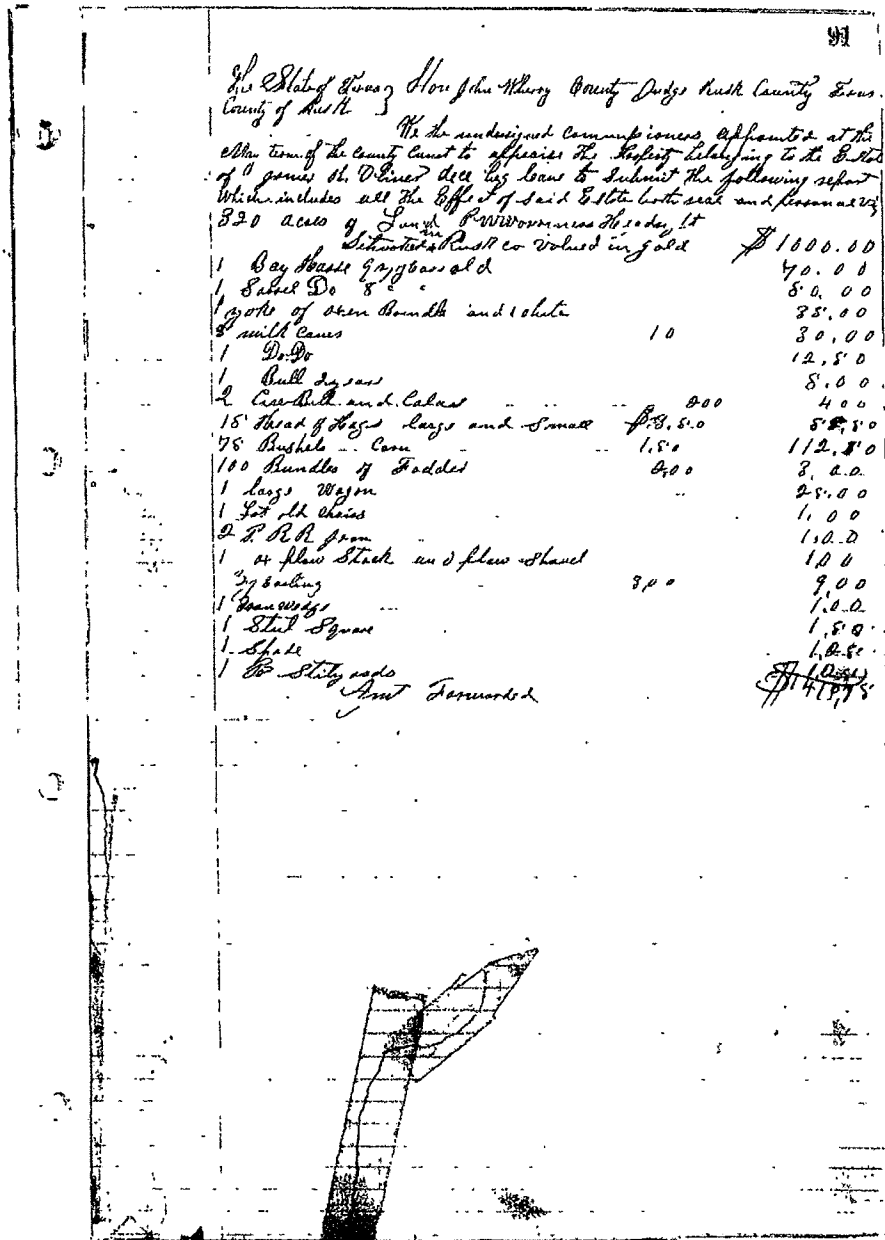 91
The State of Texas } Hon John Wherry County Judge Rusk County Texas.
County of Rusk }
We the undersigned commissioners appointed at the
May term of the County Court to appraise the Property belonging to the Estate
of James M. decd beg leave to Submit the following report
Which includes all the Effect of said Estate both real and personal viz
320 acres of Land Headright
Situated in Rusk co Valued in gold $1000.00
1 Bay Horse 9 years old 70.00
1 Sorrel Do 8 " " 50.00
1 yoke of oxen Brindle and white 35.00
3 milk Cows 10 30.00
1 Do Do 12.50
1 Bull 2 years 5.00
2 and Calves 200 400
15 Head of Hogs large and Small $3.50 52.50
75 Bushels Corn 1.50 112.50
100 Bundles of Fodder 3.00
1 large Wagon 25.00
1 Lot old chairs 1.00
2 P. R R 1.00
1 ox plow Stock and plow Shovel 100
3,00 9,00
1 Iron wedge 1.00
1 Steel Square 1.50
1 Spade
1 Pr Stilyards
Amt Forwarded